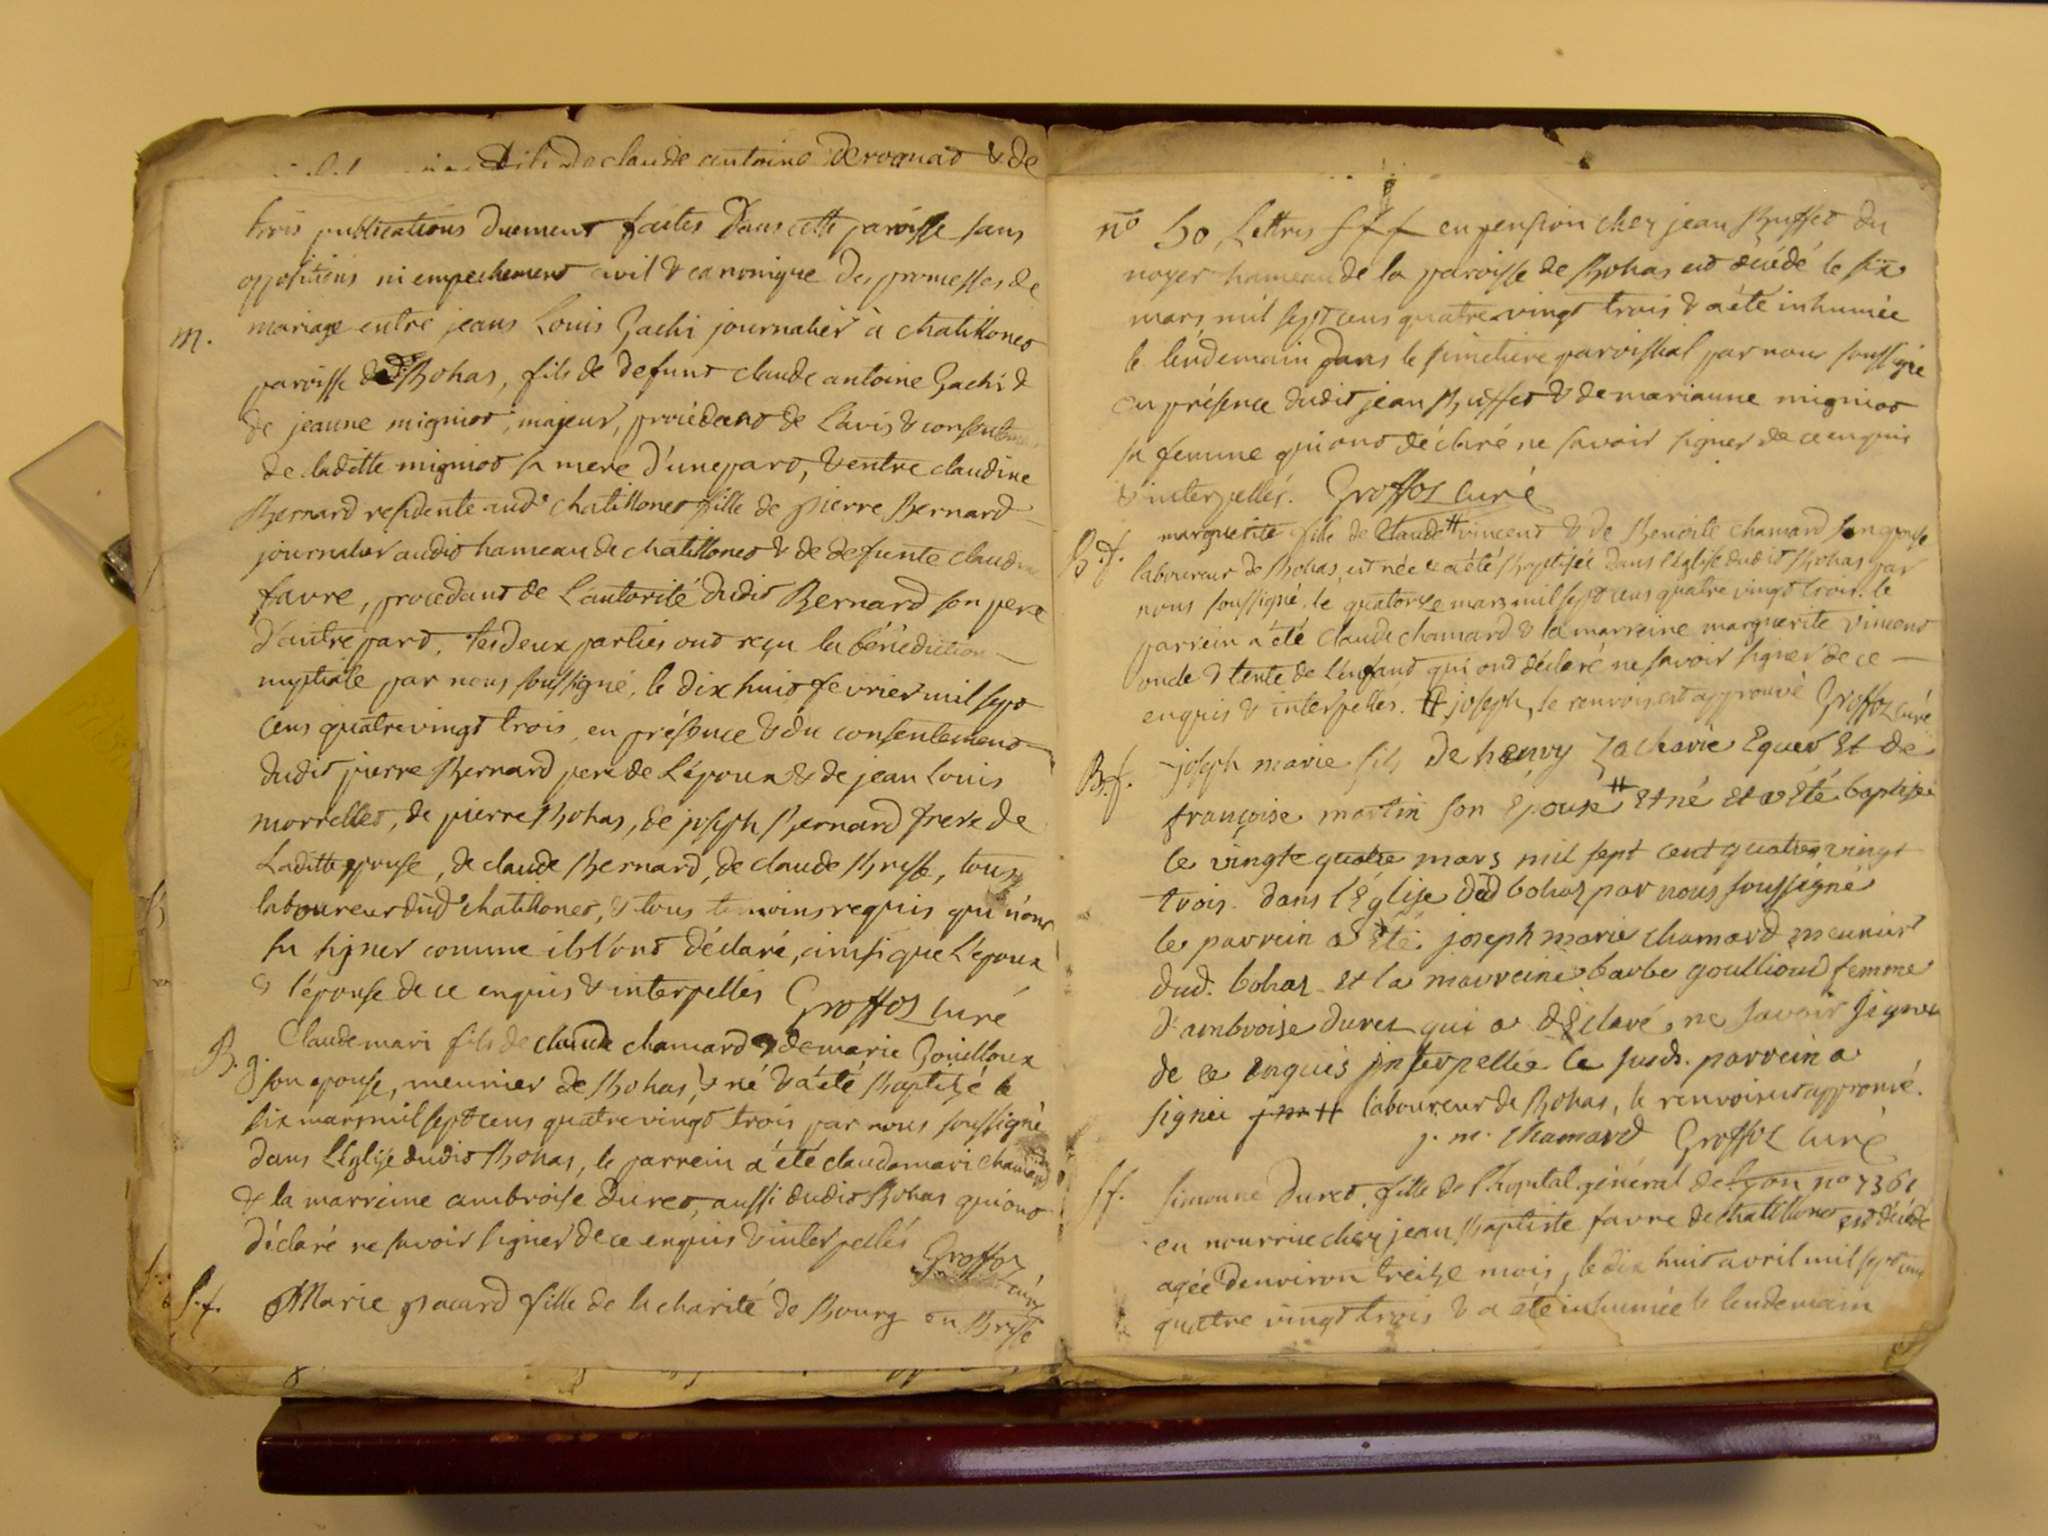 fils de claude antoine Derognat & de
trois publications duement faites Dans cette paroisse sans
oppositions ni empechement civil & canonique des promesses de
m. mariage entre jean Louis Gachi journalier à chatillonet
paroisse de Bohas, fils de defunt claude antoine Gachi &
de jeanne migniot, majeur, procedant de L'avis & consentement
de laditte migniot sa mere d'une part, & entre claudine
Bernard residente aud chatillonet fille de pierre Bernard
journalier audit hameau de chatillonet & de defunte claudine
favre, procedant de L'autorité dudit Bernard son pere
d'autre part, les deux parties ont reçu la bénédiction
nuptiale par nous soussigné, le dix huit fevrier mil sept
cens quatre vingt trois, en présence & du consentement
dudit pierre Bernard pere de L'epouse & de jean Louis
morrellet, de pierre Bohas, de joseph Bernard frere de
Laditte epouse, de claude Bernard, de claude Bresse, tous
laboureur dud chatillonet, & tous temoins requis qui n'ont
su signer comme ils l'ont déclaré, ainsi que L'epoux
& l'épouse de ce enquis & interpellés Groffoz curé
B.g. Claude mari fils de claude chamard & de marie Gouilloux
son epouse, meunier de Bohas, & né & a été Baptizé le
six mars mil sept cens quatre vingt trois par nous soussigné
dans L'église dudit Bohas, le parrein a été claude mari chamard
& la marreine ambroise Duret, aussi dudit Bohas qui ont
déclaré ne savoir signer de ce enquis & interpellés
Groffoz curé
S.f. Marie pacard fille de la charité de Bourg en Bresse
no 50 Lettres fff en pension chez jean Buffet du
noyer hameau de la paroisse de Bohas est décédé le six
mars mil sept cens quatre vingt trois & a été inhumée
le lendemain dans le simetiere paroissial par nous soussigné
en présence dudit jean Buffet & de marianne migniot
sa femme qui ont déclaré ne savoir signer de ce enquis
& interpellés. Groffoz curé
B.f. marguerite fille de Claude # vincent & de Benoite chamard son epouse
laboureur de Bohas, est née & a été Baptisée dans l'eglise dudit Bohas par
nous soussigné, le quatorze mars mil sept cens quatre vingt trois. le
parrein a été claude chamard & la marreine marguerite vincent
oncle & tente de L'enfant qui ont déclaré ne savoir signer de ce
enquis & interpellés. # joseph, le renvois est approuvé Groffoz curé
B.f. joseph marie fils de henry Zacharie Eguer Et de
françoise martin son Epouse # Et né Et a Eté baptisé
le vingte quatre mars mil sept cent quatre vingt
trois. dans l'Eglise dud bohaz par nous soussigné
le parrein a Eté joseph marie chamard meunier
dud. bohaz Et la marreine barbe goullioud femme
d'ambroise durez qui a déclaré, ne savoir signer
de ce Enquis interpellée le susd. parrein a
signéé j m # laboureur de Bohas, le renvois est approuvé.
j. m. chamard Groffoz curé
S.f. simonne Duret, fille de l'hopital général de lyon no 7361
en nourrice chez jean Baptiste favre de chatillonet est décédé
agée d'environ treize mois, le dix huit avril mil sept cens
quatre vingt trois & a été inhumée le lendemain